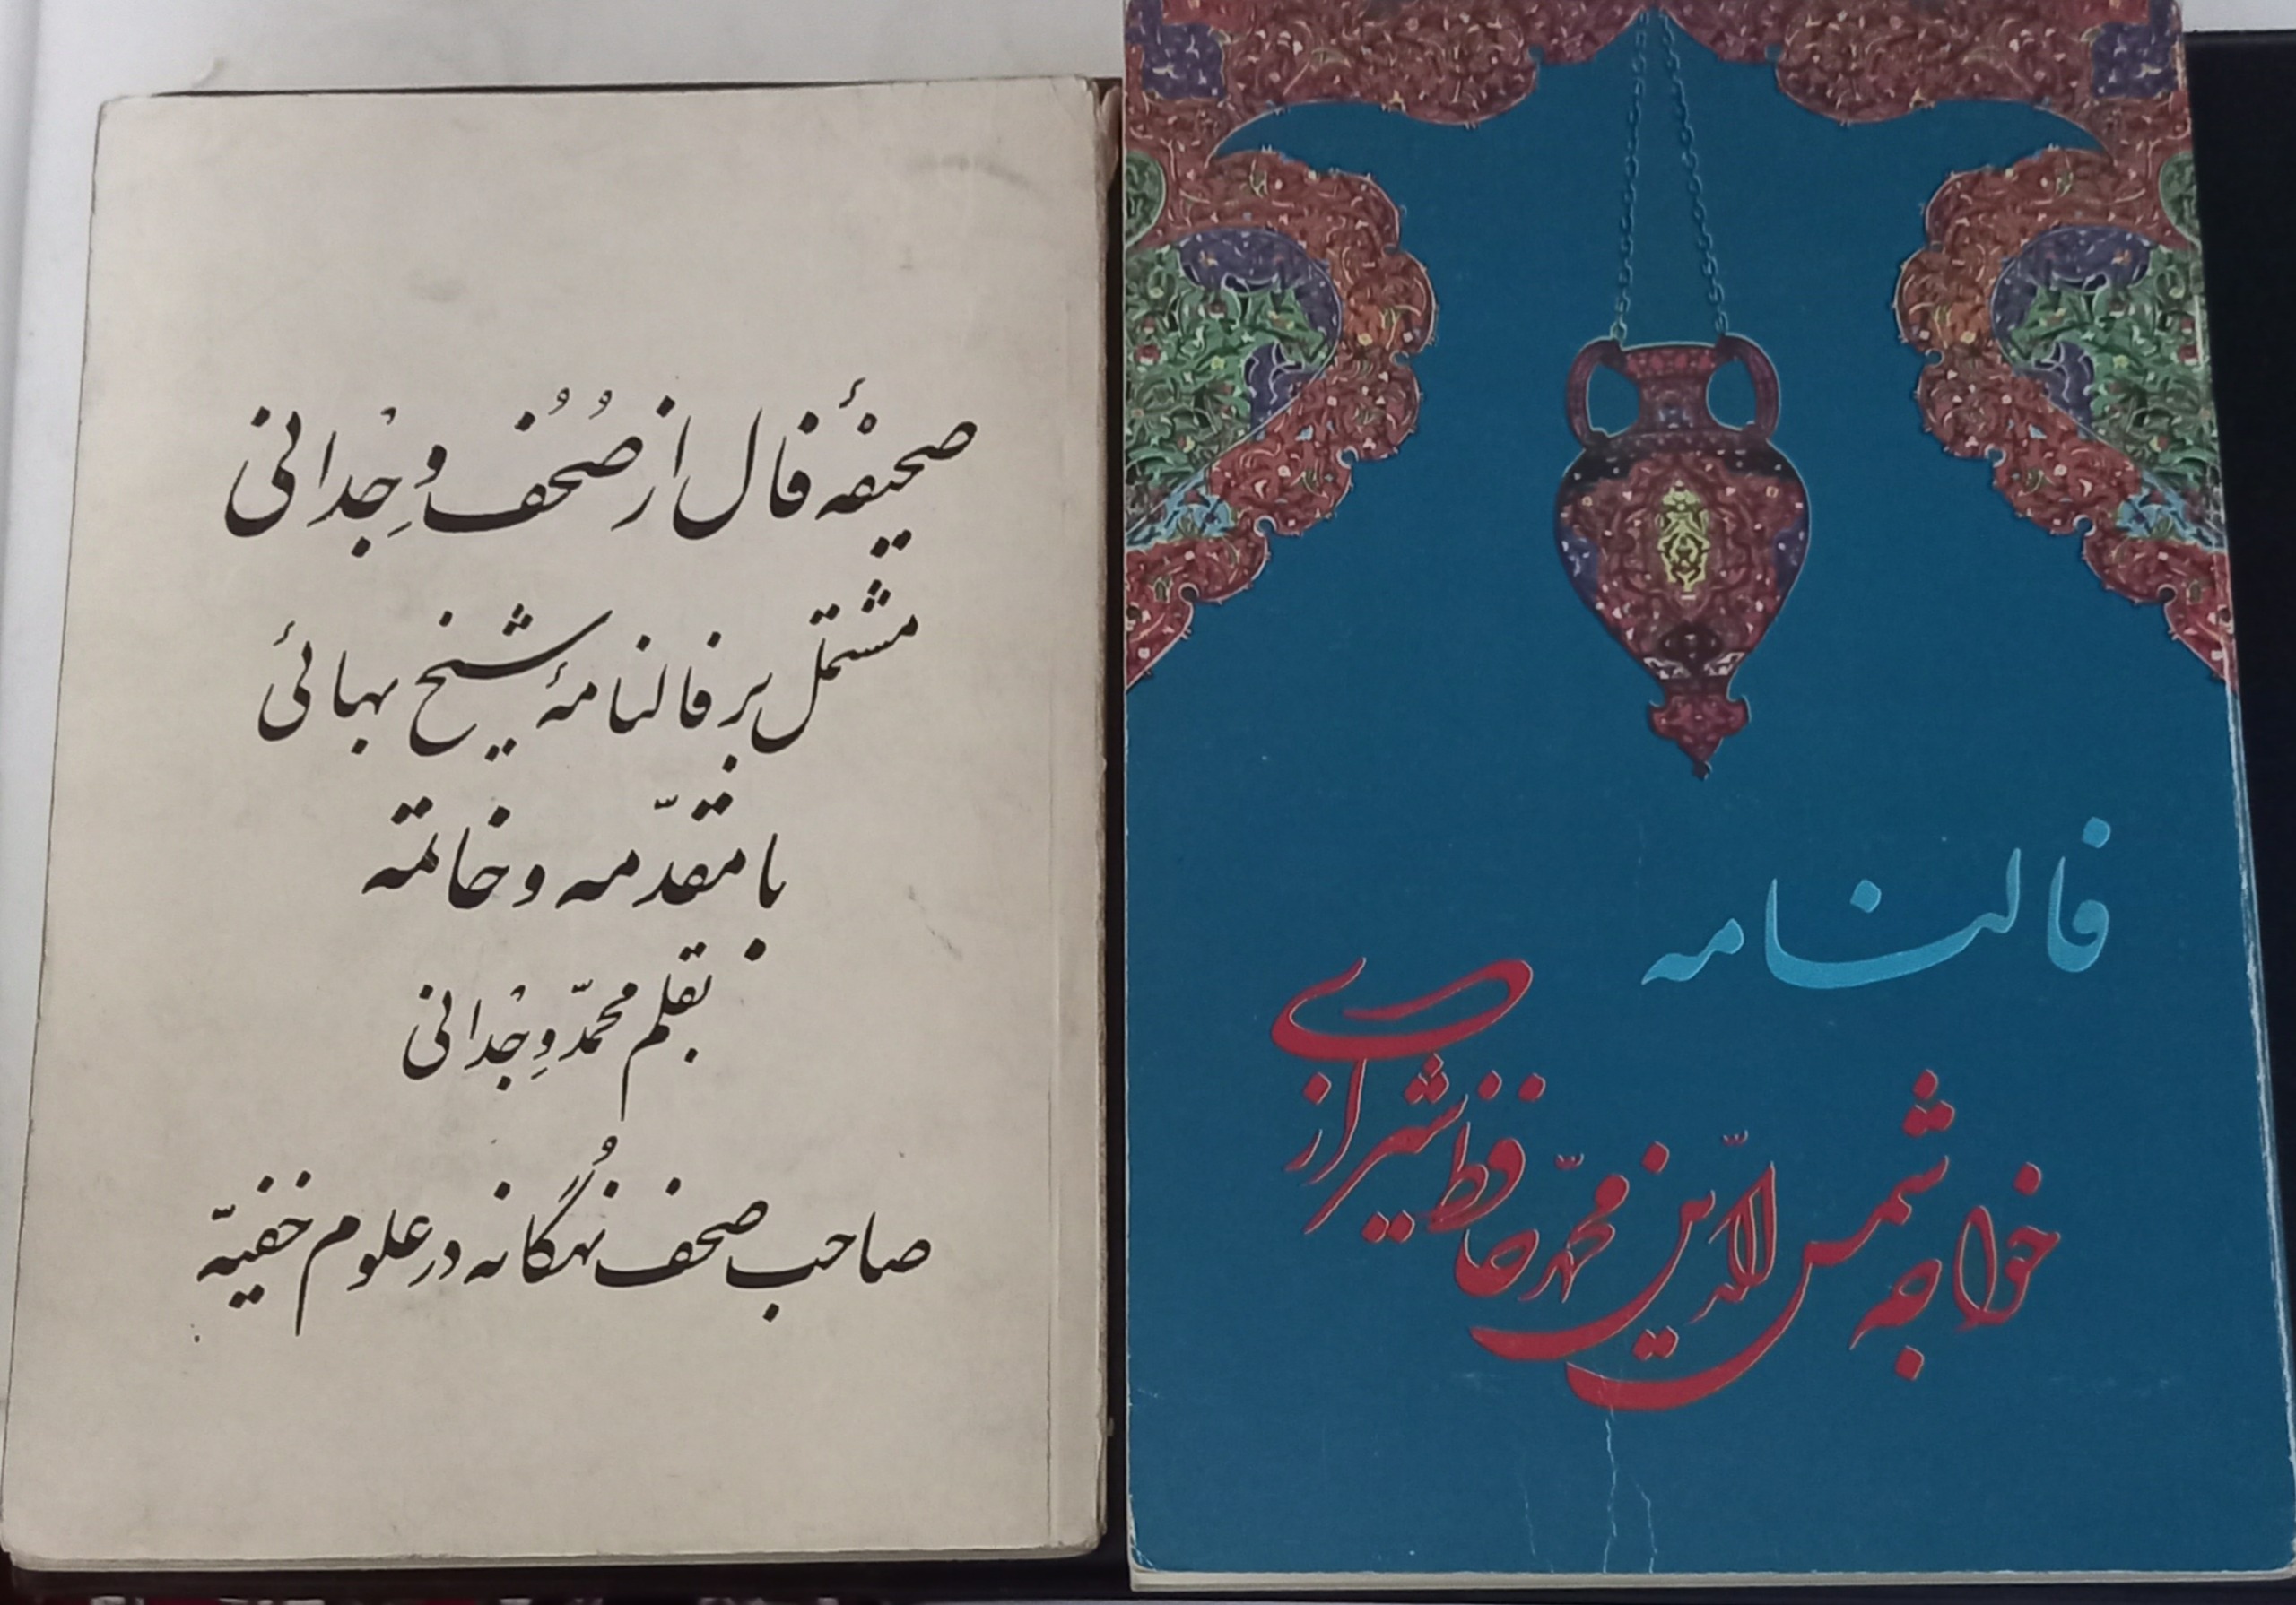 صحیفهٔ فال از صُحُف وِجْدانی
مشتمل بر فالنامهٔ شیخ بهائی
با مقدّمه و خاتمه
بقلم محمّد وِجْدانی
صاحب صحف نُهگانه در علوم خفیّه
فالنامه
خواجه شمس الدّین محمّد حافظ شیرازی